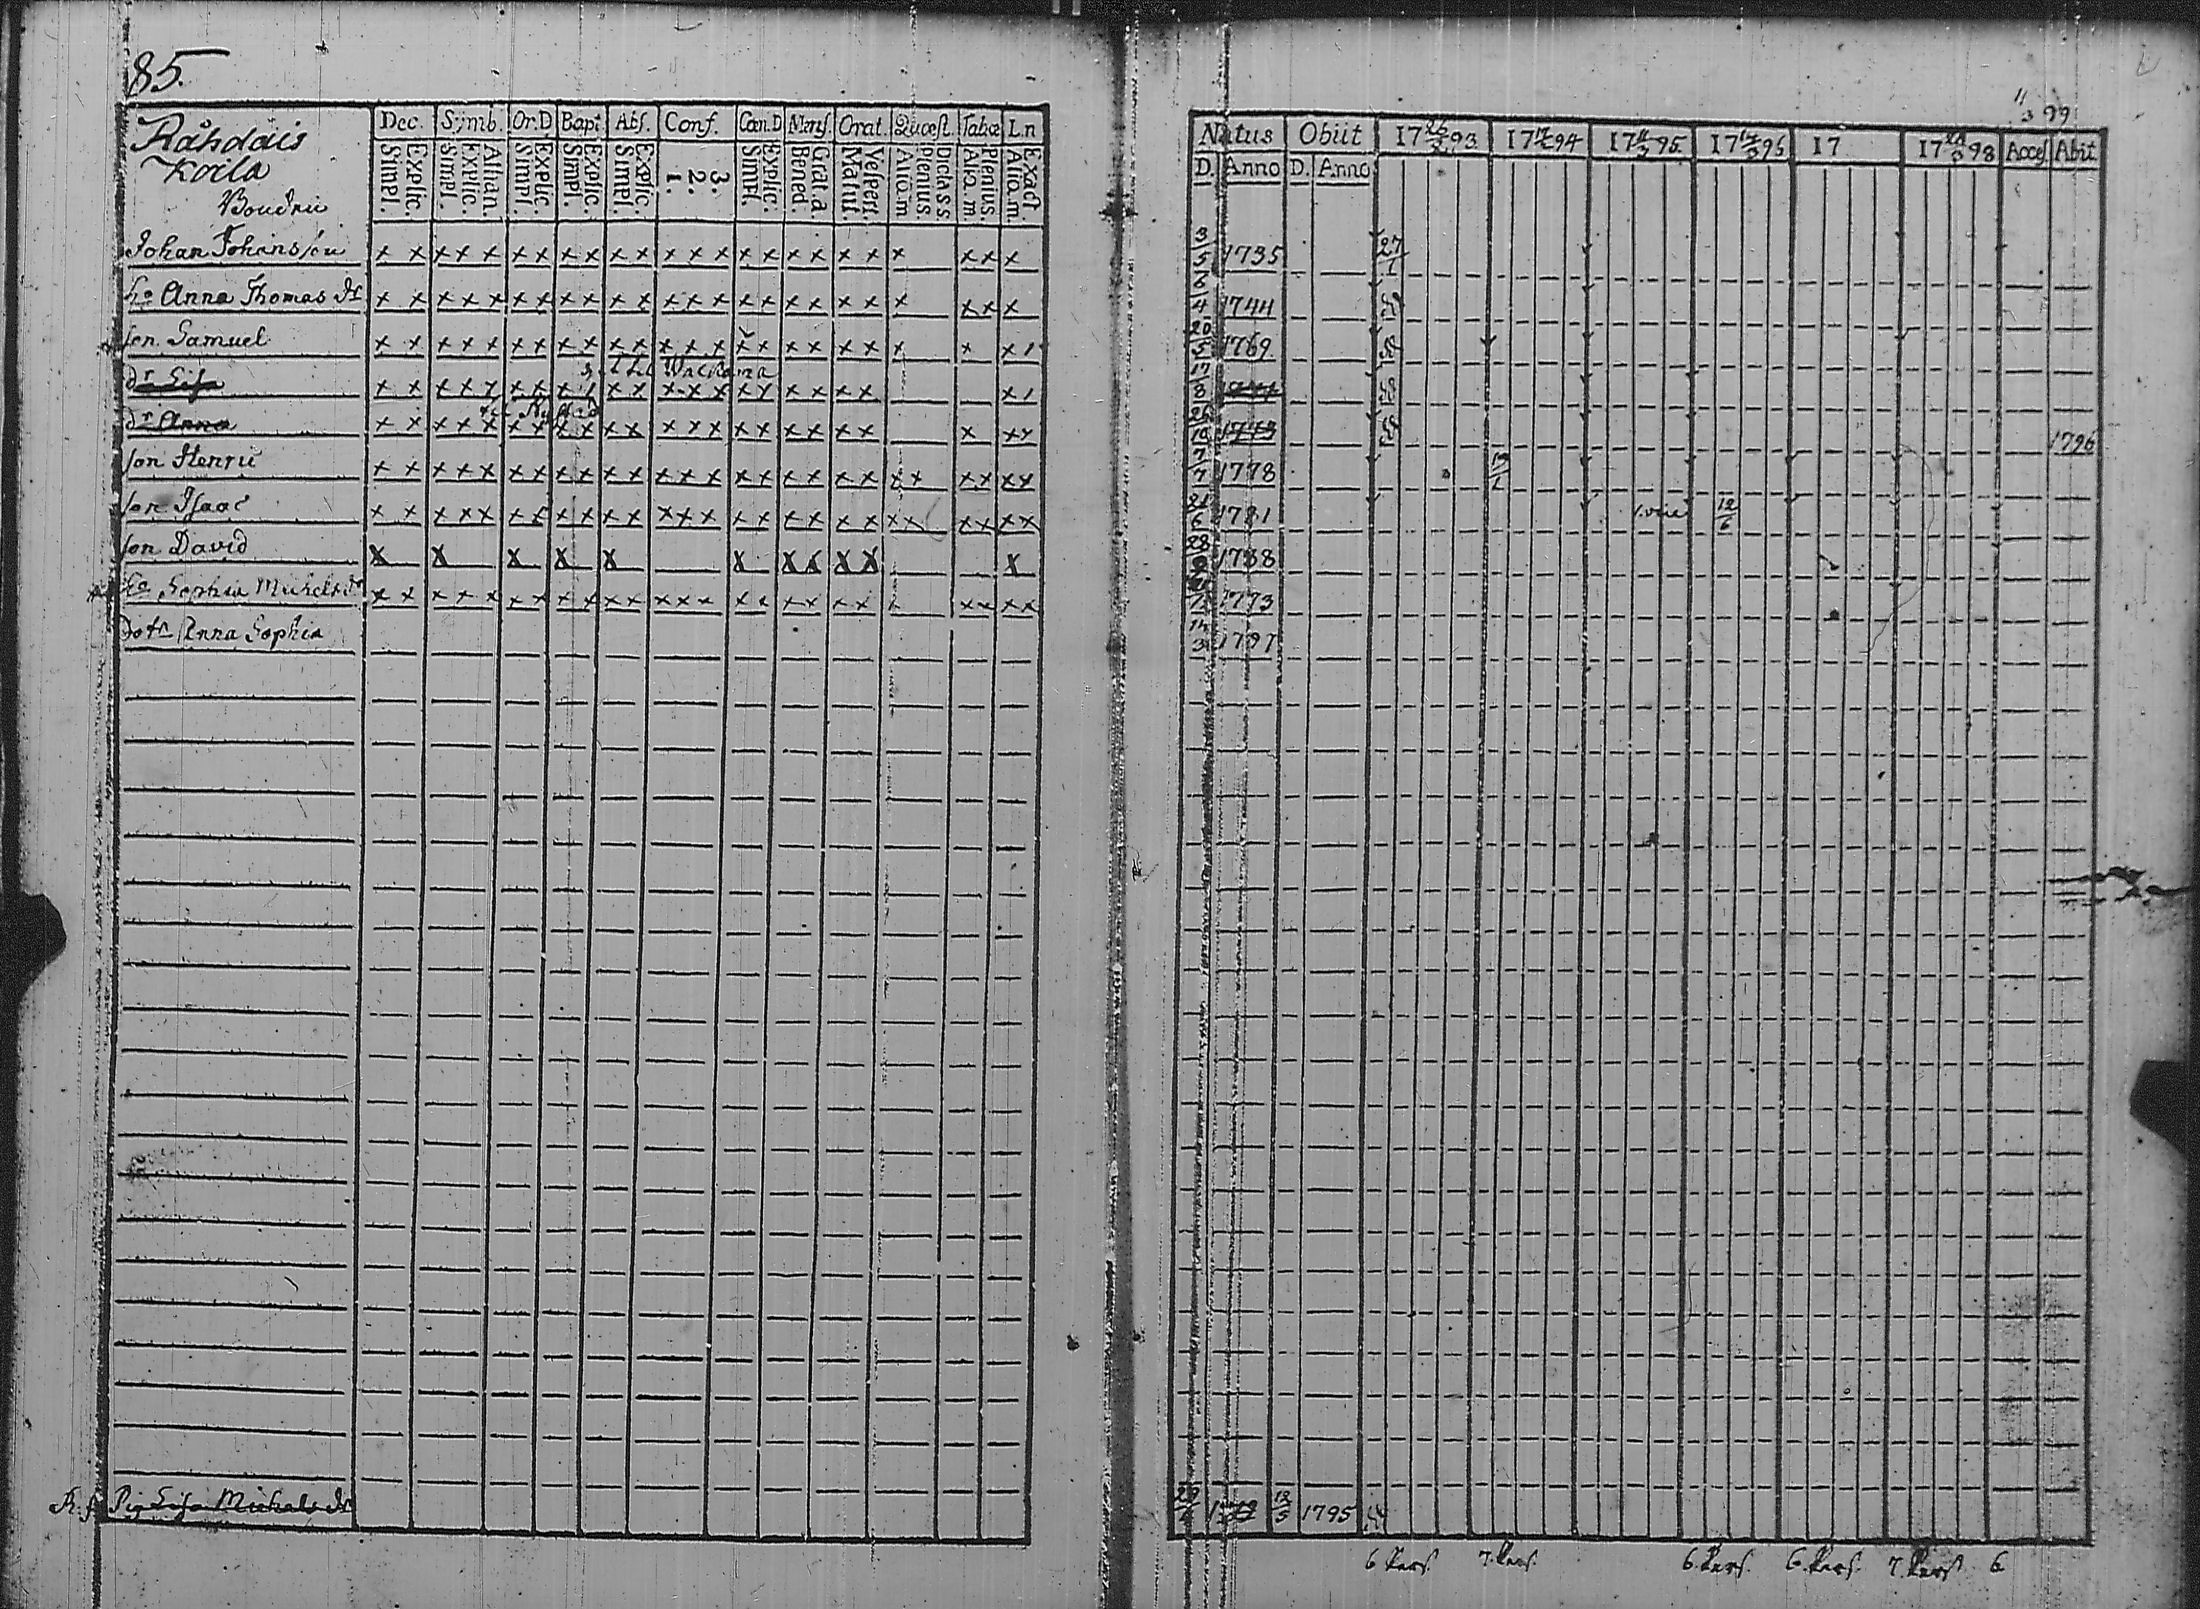 85.
Råhdais
Koila
Boudrii
Dec. Symb. Or.D Bapt Abs. Conf. Cœn.D Mens Orat. Quæst. Tabœ L.n
Simpl. Explic. Simpl. Explic. Athan. Simpl. Explic. Simpl. Explic. Simpl. Explic. 1. 2. 3. Simpl. Explic. Bened. Grat. a Matut. Vespert. Alia. m Plenius D:cta s s Alia. m. Plenius. Alia. m. Exact
Johan Johansson x x x x x x x x x x x x x x x x x x x x x x x
ho Anna Thomas dr x x x x x x x x x x x x x x x x x x x x x x x
son Samuel x x x x x x x x x x x x x x x x x x x x x
Wackama
dr Lisa x x x x x x x x x x x x x x x x x x x
dr Anna x x x x x x x x x x x x x x x x x x x x x
son Henric x x x x x x x x x x x x x x x x x x x x x x x x
son Isaac x x x x x x x x x x x x x x x x x x x x x x x x
son David x x x x x x x x x x x
Sophia Michels dr x x x x x x x x x x x x x x x x x x x x x x x
Dotr Anna Sophia
Pig Lisa Michels dr
11/3 99
Natus Obiit 17 93 17 94 17 11/3 95 17 14/3 96 17 17 98 Acces Abit
D. Anno D. Anno
3/5 1735 27/1
6/4 1744
20/5 1769
17/8
26/10 1773 1796
7/7 1778
21/6 1781 12/6
28/9 1788
1773
14/3 1797
12/5 1795
6 Pers. 7. Pers 6 Pers. 6. Pers. 7. Pers 6